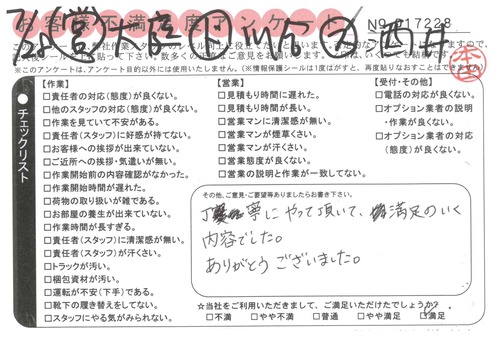 お客様不満足度アンケート
№ 017228
※このアンケートは、アンケート目的以外には使用いたしません。（※情報保護シールは1度がすと、再度貼りなおすことはできません
チェックリスト
【作業】
□責任者の対応（態度）が良くない。
□他のスタッフの対応（態度）が良くない。
□作業を見ていて不安がある。
□責任者（スタッフ）に好感が持てない。
□お客様への挨拶が出来ていない。
□ご近所への挨拶・気遣いが無い。
□作業開始前の内容確認がなかった。
□作業開始時間が遅れた。
□荷物の取り扱いが雑である。
□お部屋の養生が出来ていない。
□作業時間が長すぎる。
□責任者（スタッフ）に清潔感が無い。
□責任者（スタッフ）が汗くさい。
□トラックが汚い。
□梱包資材が汚い。
□運転が不安（下手）である。
□靴下の履き替えをしてない。
□スタッフにやる気がみられない。
【営業】
□見積もり時間に遅れた。
□見積もり時間が長い。
□営業マンに清潔感が無い。
□営業マンが煙草くさい。
□営業マンが汗くさい。
□営業態度が良くない。
□営業の説明と作業が一致してない。
【受付・その他】
□電話の対応が良くない。
□オプション業者の説明
・作業が良くない。
□オプション業者の対応
（態度）が良くない。
その他、ご意見・ご要望等ありましたらお書き下さい。
丁寧にやって頂いて、満足のいく
内容でした。
ありがとうございました。
☆当社をご利用いただきまして、ご満足いただけたでしょうか？
□不満 □やや不満 □普通 □やや満足 □満足